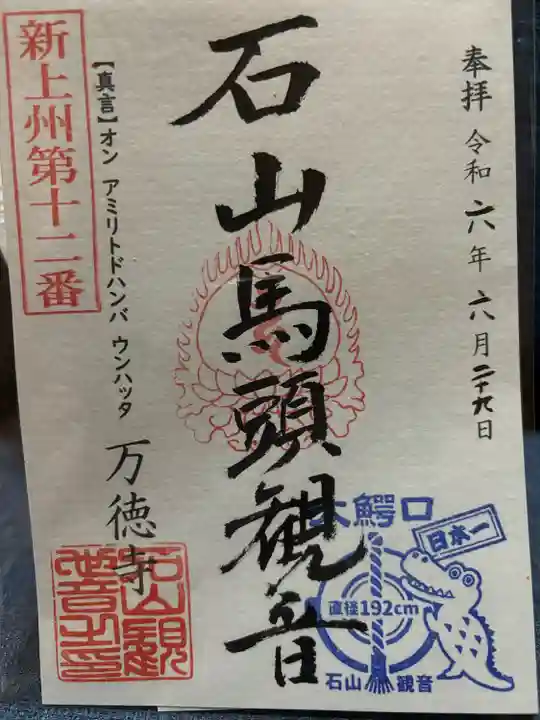 奉拝 令和六年六月二十九日
石山馬頭観音
新上州第十二番
【真言】オン アミリトドハンバ ウンハッタ
万徳寺
石山観世音之印
木鰐口
日本一
直径192cm
石山 観音